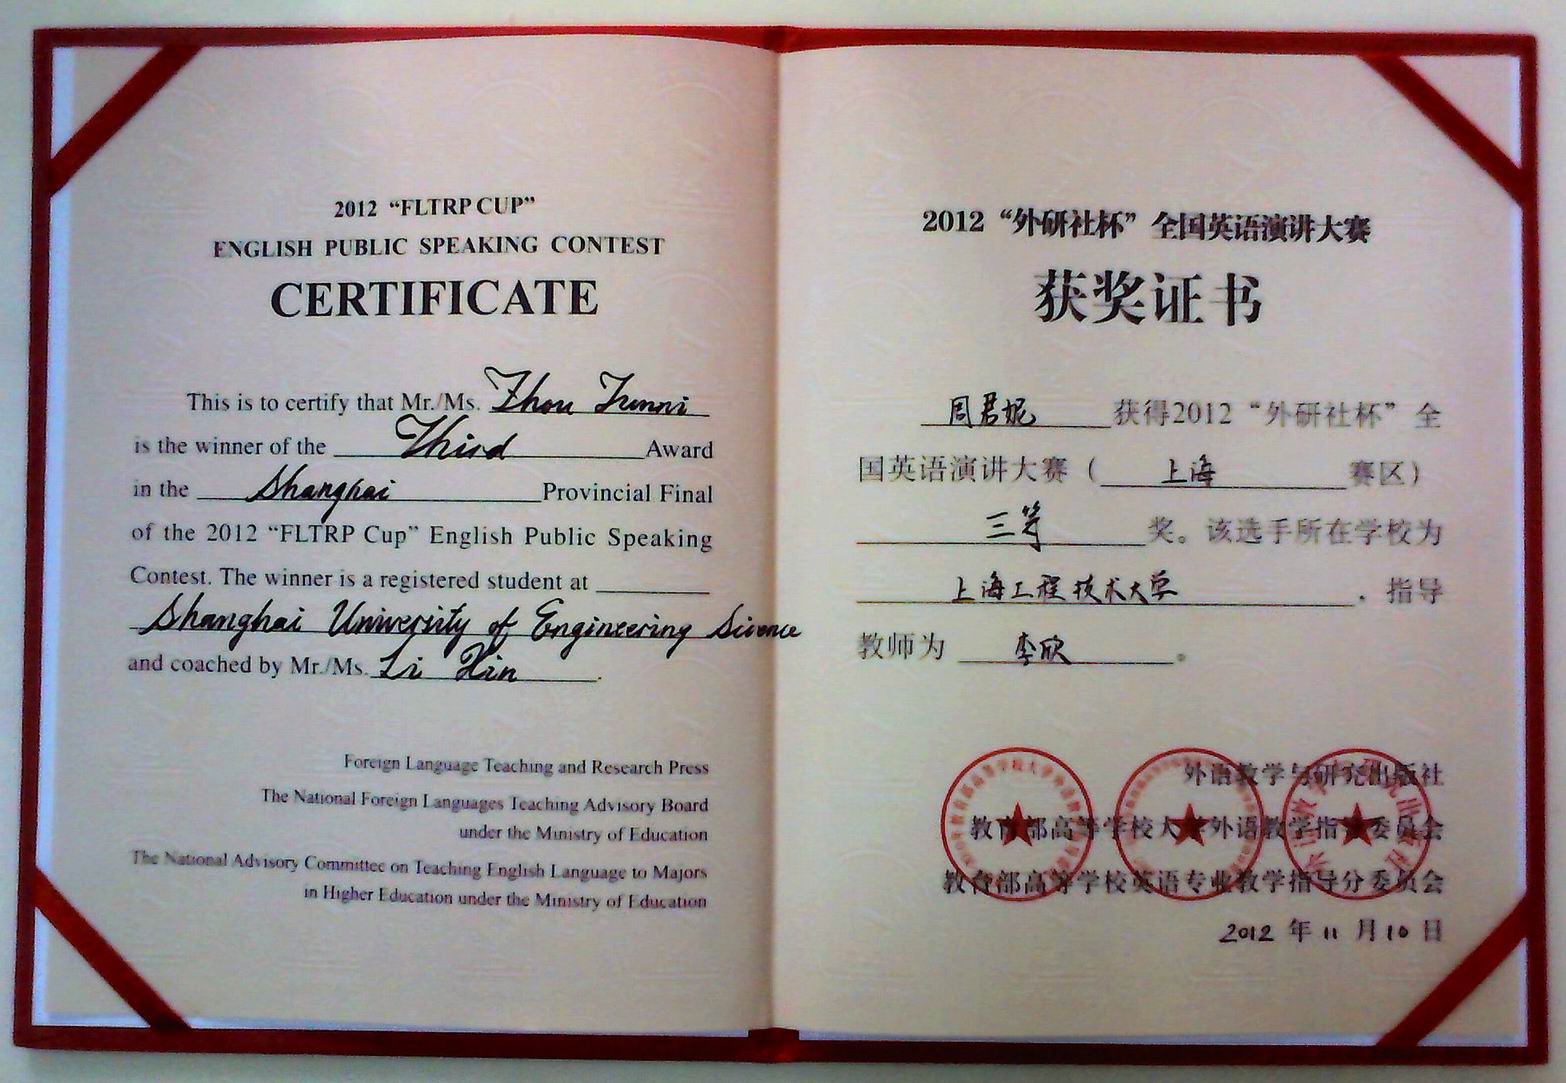 2012 “FLTRP CUP”
ENGLISH PUBLIC SPEAKING CONTEST
CERTIFICATE
This is to certify that Mr./Ms. Zhou Junni
is the winner of the Third Award
in the Shanghai Provincial Final
of the 2012 “FLTRP Cup” English Public Speaking
Contest. The winner is a registered student at
Shanghai University of Engineering Science
and coached by Mr./Ms. Li Xin.
Foreign Language Teaching and Research Press
The National Foreign Languages Teaching Advisory Board
under the Ministry of Education
The National Advisory Committee on Teaching English Language to Majors
in Higher Education under the Ministry of Education
2012“外研社杯”全国英语演讲大赛
获奖证书
周君妮 获得2012“外研社杯”全
国英语演讲大赛（上海 赛区）
三等 奖。该选手所在学校为
上海工程技术大学 . 指导
教师为 李欣 。
外语教学与研究出版社
教育部高等学校大学外语教学指导委员会
教育部高等学校英语专业教学指导分委员会
2012 年 11 月 10 日